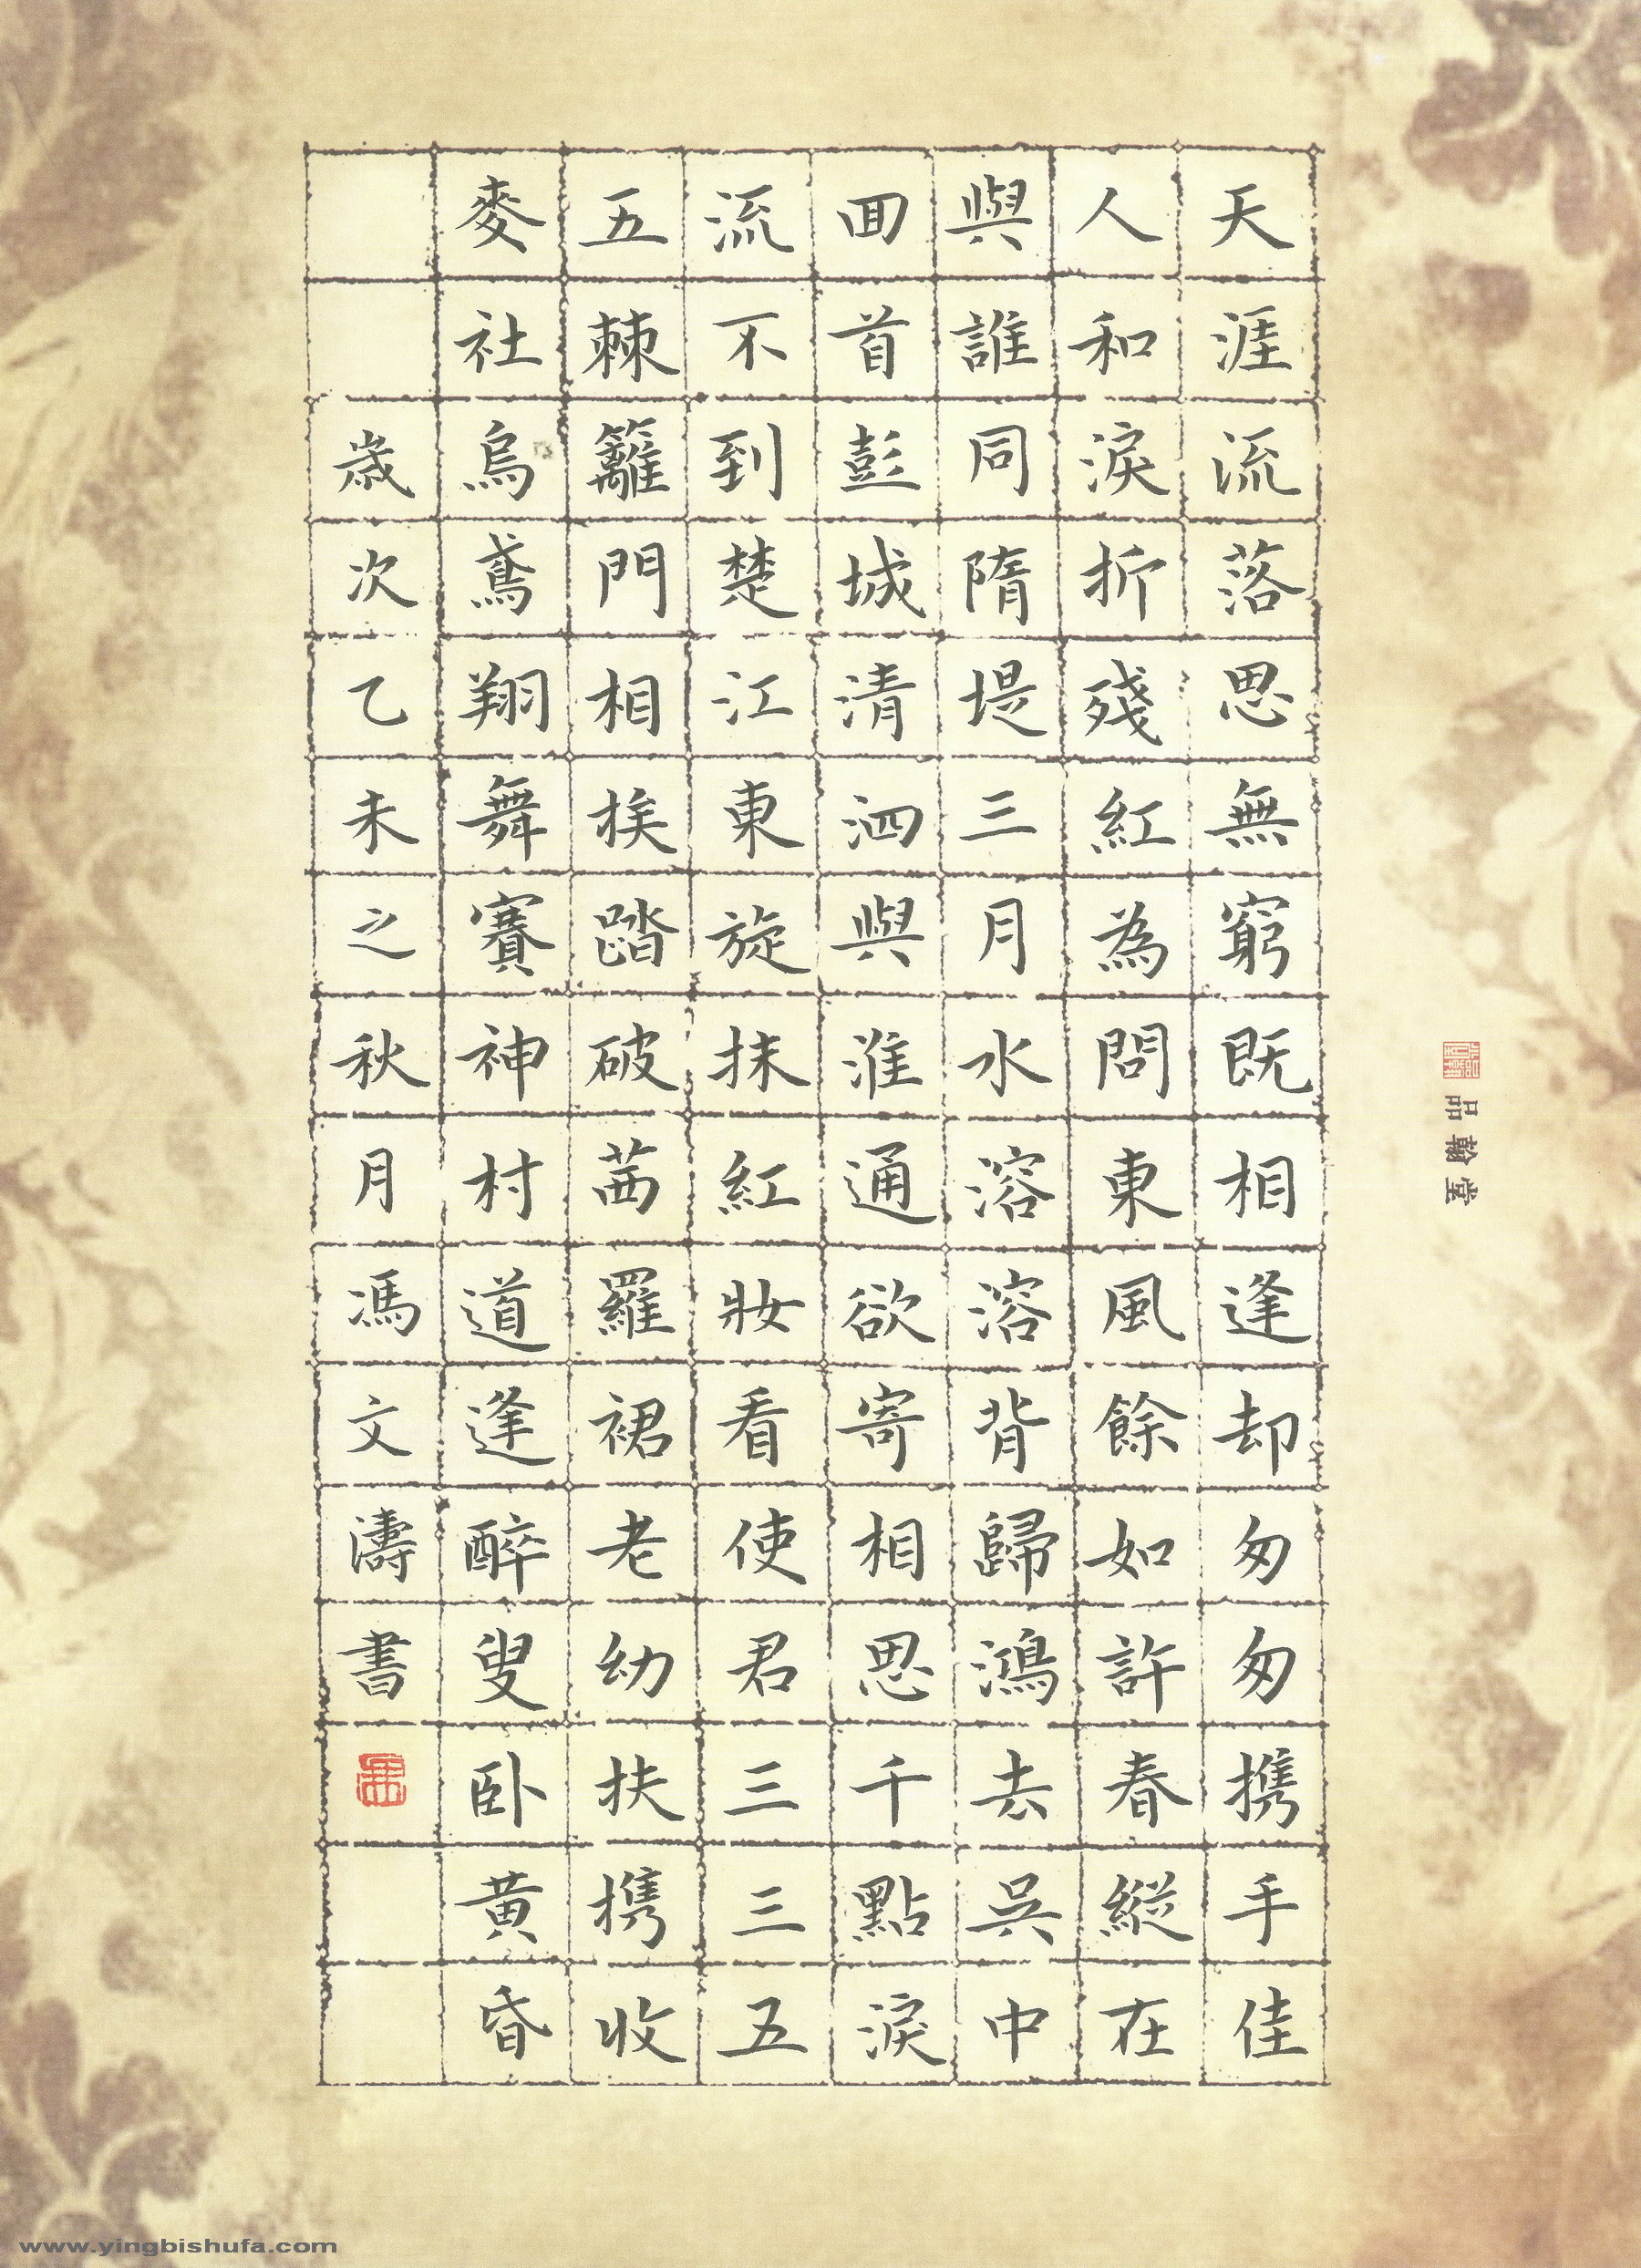 天涯流落思無窮既相逢却匆匆携手佳
人和淚折殘紅為問東風餘如許春縱在
與誰同隋堤三月水溶溶背歸鴻去吳中
回首彭城清泗與淮通欲寄相思千點淚
流不到楚江東旋抹紅妝看使君三三五
五棘籬門相挨踏破茜羅裙老幼扶携收
麥社烏鳶翔舞賽神村道逢醉叟卧黄昏
歲次乙未之秋月馮文濤書
品翰堂
www.yingbishufa.com